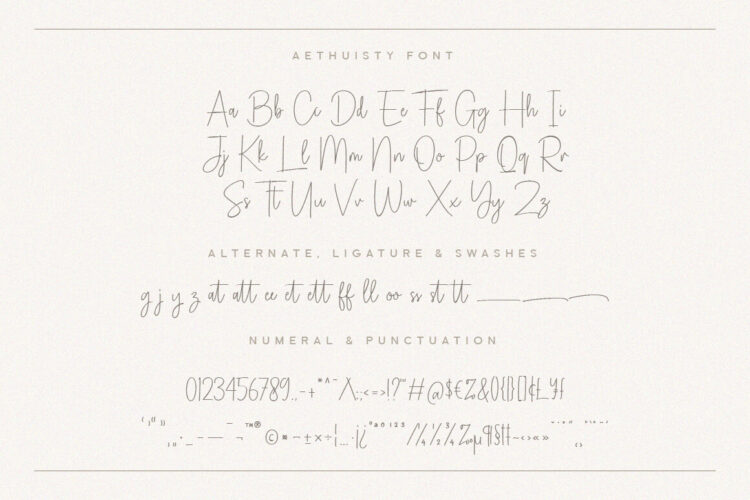 AETHUISTY FONT
Aa Bb Cc Dd Ee Ff Gg Hh Ii
Jj Kk Ll Mm Nn Oo Pp Qq Rr
Ss Tt Uu Vv Ww Xx Yy Zz
ALTERNATE, LIGATURE & SWASHES
g j y z at att ee et ett ff ll oo ss st tt
NUMERAL & PUNCTUATION
0123456789.,-+*^~/\:;<=>!?"'#@$€%&(){}[]¢£¥ƒ
™® ©¤−±×÷¦…·¡¿ªº0123 ⁄¼½¾‰µ¶§†‡~‹›«»